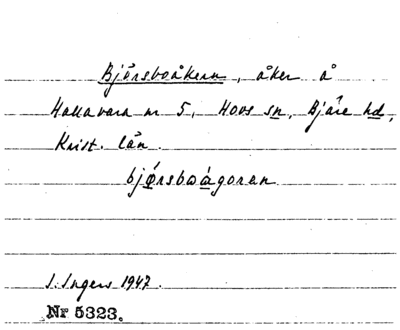 Bjärsboåkern, åker å
Hallavara nr 5, Hovs sn, Bjäre hd,
Krist. län.
bjǿrsbɷágoran
I. Ingers 1947.
Nr 5323.